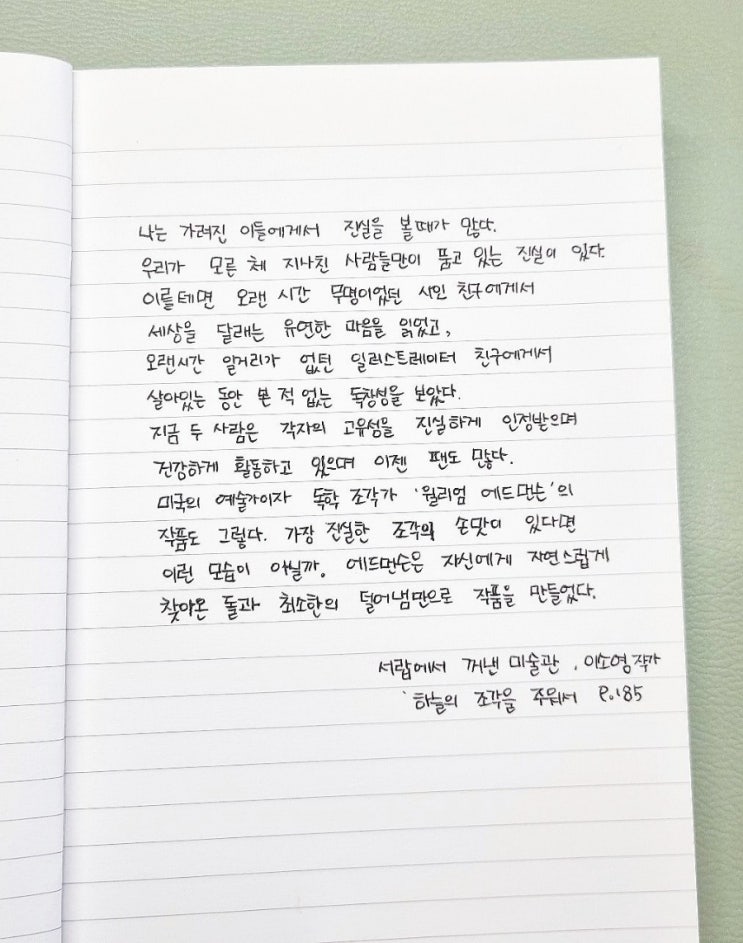 나는 가려진 이들에게서 진실을 볼때가 많다.
우리가 모른 체 지나친 사람들만이 품고 있는 진실이 있다.
이를테면 오랜 시간 무명이었던 시인 친구에게서
세상을 달래는 유연한 마음을 읽었고,
오랜시간 일거리가 없던 일러스트레이터 친구에게서
살아있는 동안 본 적 없는 독창성을 보았다.
지금 두 사람은 각자의 고유성을 진실하게 인정받으며
건강하게 활동하고 있으며 이젠 팬도 많다.
미국의 예술가이자 독학 조각가 '윌리엄 에드먼슨'의
작품도 그렇다. 가장 진실한 조각의 손맛이 있다면
이런 모습이 아닐까. 에드먼슨은 자신에게 자연스럽게
찾아온 돌과 최소한의 덜어냄만으로 작품을 만들었다.
서랍에서 꺼낸 미술관, 이소영작가
'하늘의 조각을 주워서 P.185